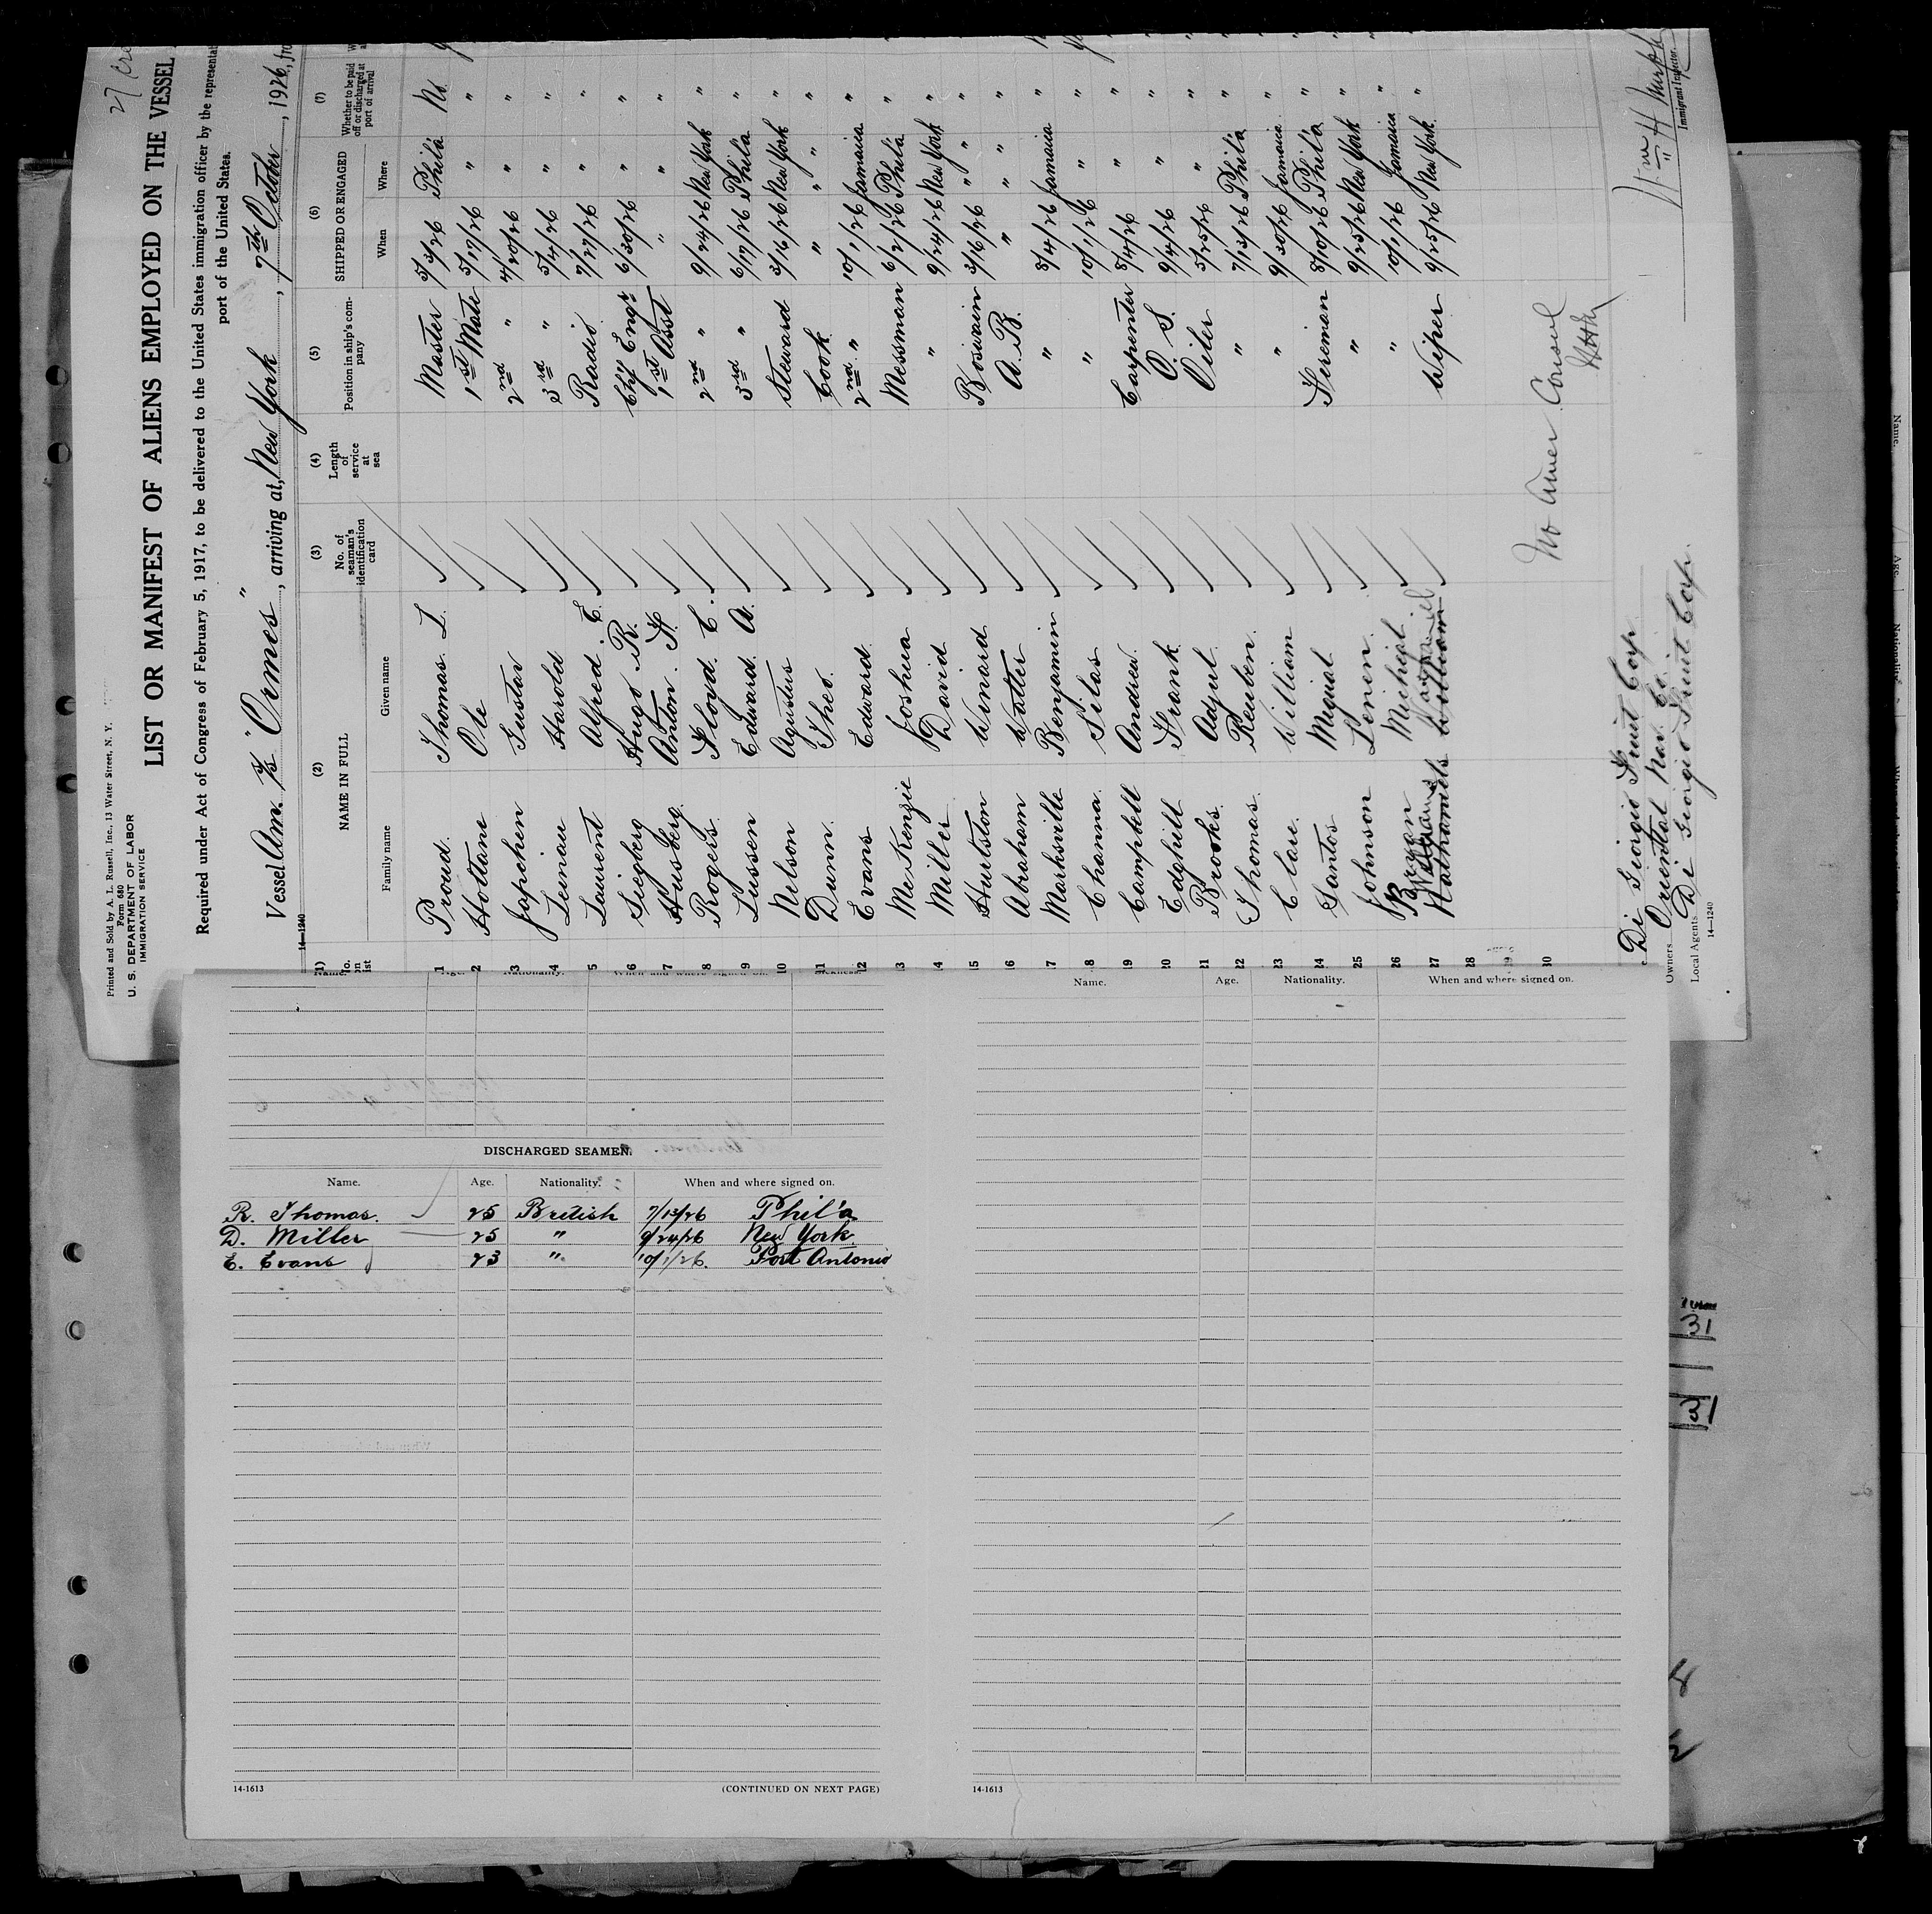 27
Printed and Sold by A. L. Russell, Inc., 13 Water Street, N. Y.
Form 680
U. S. DEPARTMENT OF LABOR
IMMIGRATION SERVICE
LIST OR MANIFEST OF ALIENS EMPLOYED ON THE VESSEL
Required under Act of Congress of February 5, 1917, to be delivered to the United States immigration officer by the representat
port of the United States.
Vessel Am. S/S "Ormes", arriving at, New York, 7th October, 1926, fro
14—1240
(2) (3) (4) (5) (6) (7)
NAME IN FULL No. of seaman's identification card Length of service at sea Position in ship's company SHIPPED OR ENGAGED Whether to be paid off or discharged at port of arrival
Family name Given name When Where
1 Proud Thomas L. Master 5/3/26 Phil'a No
2 Hottane Ole 1st Mate 5/17/26 " "
3 Japchen Gustav 2nd " 4/20/26 " "
4 Leinau Harold 3rd " 5/4/26 " "
5 Laurent Alfred E. Radio 7/27/26 " "
6 Siegberg Hugo R. Chf Engr 6/30/26 " "
7 Husberg Anton H. 1st Asst " " "
8 Rogers Floyd C. 2nd " 9/24/26 New York "
9 Lussen Edward A. 3rd " 6/17/26 Phila "
10 Nelson Agustus Steward 3/16/26 New York "
11 Dunn Theo. Cook " " "
12 Evans Edward 2nd " 10/1/26 Jamaica "
13 McKenzie Joshua Messman 6/2/26 Phil'a "
14 Miller David " 9/24/26 New York "
15 Hulston Winard Boswain 3/16/26 " " "
16 Abraham Walter A. B. " " "
17 Marksville Benjamin " 8/4/26 Jamaica "
18 Channa Silas " 10/1/26 " "
19 Campbell Andrew Carpenter 8/4/26 " "
20 Edghill Frank O. S. 9/4/26 " "
21 Brooks Adjul Oiler 5/25/26 " "
22 Thomas Reuben " 7/13/26 Phil'a "
23 Clare William " 9/30/26 Jamaica "
24 Santos Migual Fireman 8/10/26 Phil'a "
25 Johnson Linen " 9/25/26 New York "
26 Bryan Michial " 10/1/26 Jamaica "
27 Nathaniels William Wiper 9/25/26 New York "
28
29
30
No Amer Consul
Wm H Murph
Immigrant Inspector.
Di Giorgio Fruit Corp
Owners Oriental Nav. Co.
Local Agents Di Giorgio Fruit Corp.
14—1240
DISCHARGED SEAMEN.
Name. Age. Nationality. When and where signed on.
R. Thomas. 25 British 7/13/26 Phil'a
D. Miller 25 " 9/24/26 New York
E. Evans 23 " 10/1/26. Port Antonio
14-1613 (CONTINUED ON NEXT PAGE)
Name. Age. Nationality. When and where signed on.
14-1613
31
21